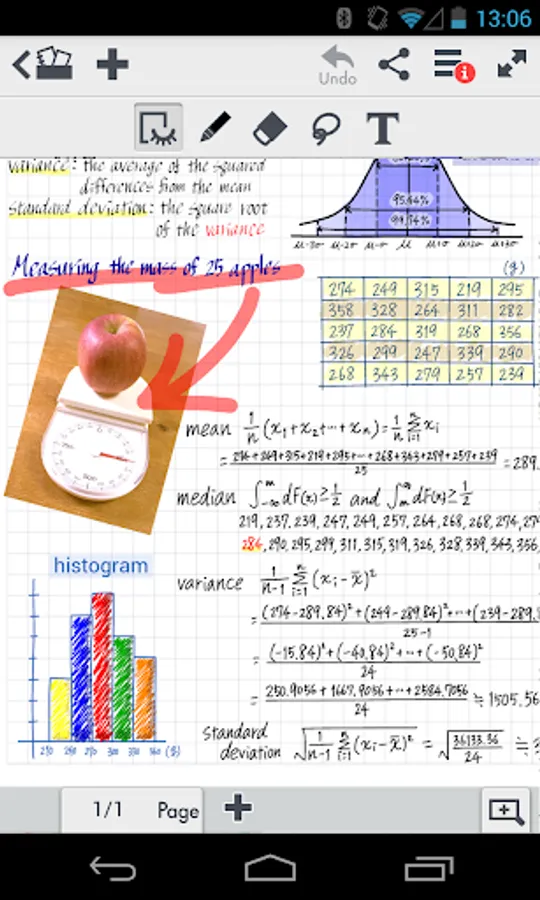 13:06
Undo
T
variance: the average of the squared
differences from the mean
standard deviation: the square root
of the variance
95.44%
99.74%
μ-3σ μ-2σ μ-σ μ μ+σ μ+2σ μ+3σ
Measuring the mass of 25 apples
(g)
274 249 315 219 295
358 328 264 311 282
237 284 319 268 356
326 299 247 339 290
268 343 279 257 239
mean 1/n (x₁+x₂+…+xₙ)=1/n Σⁿᵢ₌₁ xᵢ
= 274+249+315+219+295+…+268+343+279+257+239 / 25 = 289.
median ∫ᵐ₋∞ dF(x)≥1/2 and ∫∞ₘ dF(x)≥1/2
219,237,239,247,249,257,264,268,268,274,27
284,290,295,299,311,315,319,326,328,339,343,356,
histogram
variance 1/n-1 Σⁿᵢ₌₁ (xᵢ-x̄)²
= (274-289.84)²+(249-289.84)²+…+(239-289.8 / 25-1
= (-15.84)²+(-40.84)²+…+(-50.84)² / 24
= 250.9056+1667.9056+…+2584.7056 / 24 ≒ 1505.56
standard
deviation √1/n-1 Σⁿᵢ₌₁ (xᵢ-x̄)² = √36133.36/24 ≒
(g)
1/1 Page